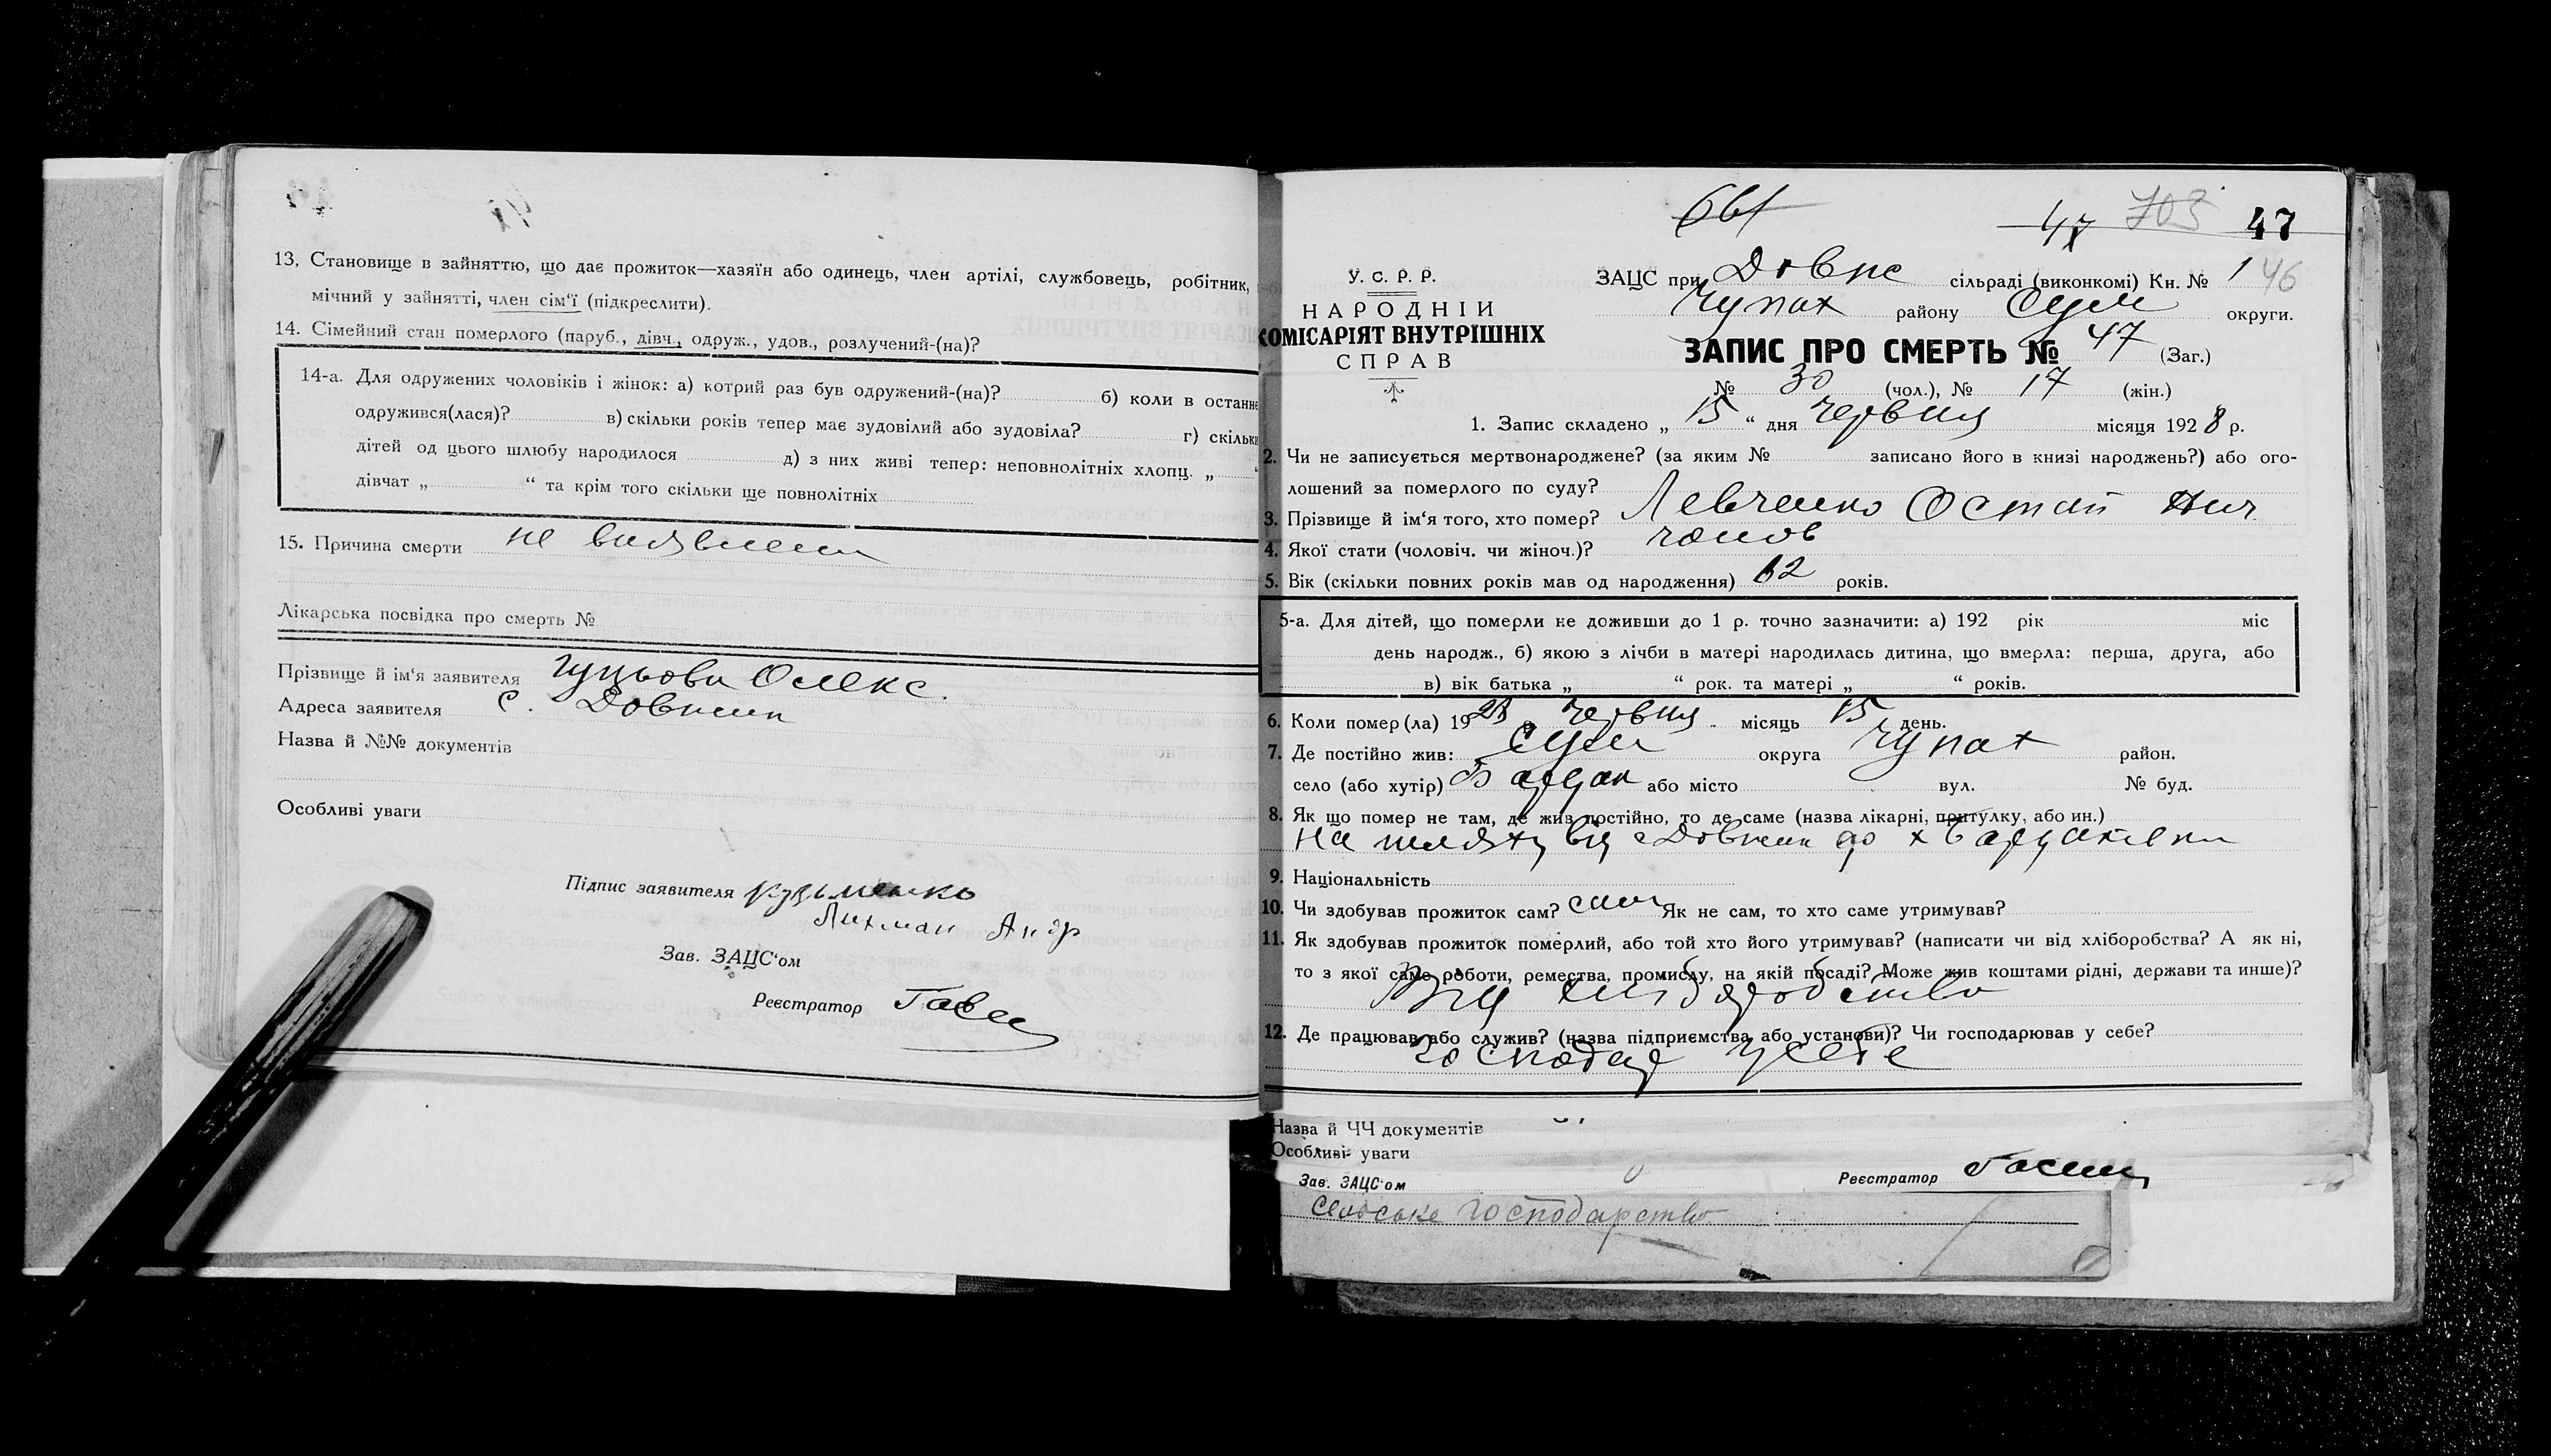 13. Становище в зайняттю, що дає прожиток—хазяїн або одинець, член артілі, службовець, робітник,
мічний у зайнятті, член сім'ї (підкреслити).
14. Сімейний стан померлого (паруб., дівч., одруж., удов., розлучений-(на)?
14-а. Для одружених чоловіків і жінок: а) котрий раз був одружений-(на)? б) коли в останнє
одружився(лася)? в) скільки років тепер має зудовілий або зудовіла? г) скільки
дітей од цього шлюбу народилося д) з них живі тепер: неповнолітніх хлопц. „ “
дівчат „ “ та крім того скільки ще повнолітніх
15. Причина смерти не
Лікарська посвідка про смерть №
Прізвище й ім'я заявителя Олекс.
Адреса заявителя с. Довжик
Назва й №№ документів
Особливі уваги
Підпис заявителя Кузьменко
Лихман Андр
Зав. ЗАЦС'ом
Реєстратор
661 47 703 47
У. С. Р. Р.
НАРОДНІЙ
КОМІСАРІЯТ ВНУТРІШНІХ
СПРАВ
ЗАЦС при Довжс сільраді (виконкомі) Кн. № 1 46
Чупах району Сум округи.
ЗАПИС ПРО СМЕРТЬ № 47 (Заг.)
№ 30 (чол.), № 17 (жін.)
1. Запис складено „ 15 “ дня червня місяця 1928 р.
2. Чи не записується мертвонароджене? (за яким № записано його в книзі народжень?) або ого-
лошений за померлого по суду?
3. Прізвище й ім'я того, хто помер? Левченко Остап Ничи
4. Якої стати (чоловіч. чи жіноч.)? чолов
5. Вік (скільки повних років мав од народження) 62 років.
5-а. Для дітей, що померли не доживши до 1 р. точно зазначити: а) 192 рік міс
день народж., б) якою з лічби в матері народилась дитина, що вмерла: перша, друга, або
в) вік батька „ “ рок. та матері „ “ років.
6. Коли помер(ла) 1928 р червня місяць 15 день.
7. Де постійно жив: Сум округа Чупах район.
село (або хутір) Бардак або місто вул. № буд.
8. Як що помер не там, де жив постійно, то де саме (назва лікарні, притулку, або ин.)
на шляху від с Довжик до х Бардаківки
9. Національність
10. Чи здобував прожиток сам? сам Як не сам, то хто саме утримував?
11. Як здобував прожиток померлий, або той хто його утримував? (написати чи від хліборобства? А як ні,
то з якої саме роботи, ремества, промислу, на якій посаді? Може жив коштами рідні, держави та инше)?
Від хліборобство
12. Де працював або служив? (назва підприємства або установи)? Чи господарював у себе?
господар у себе
Назва й ЧЧ документів
Особливі уваги
Зав. ЗАЦС'ом Реєстратор
Сельське господарство